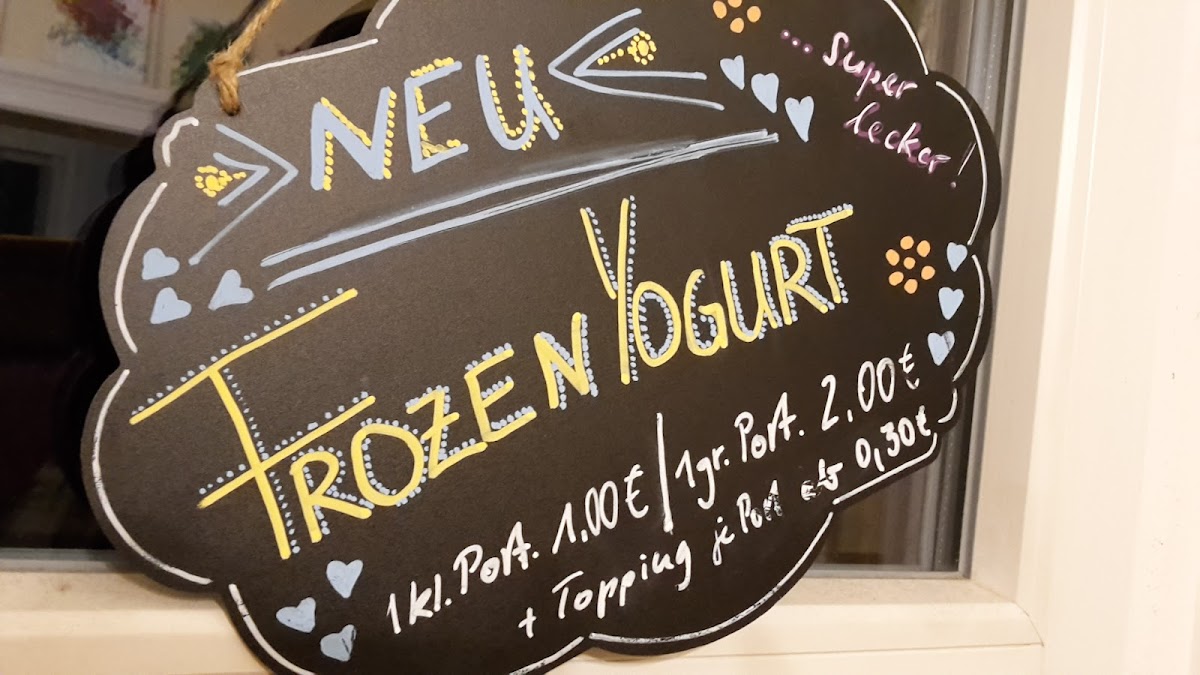 NEU
... super
lecker!
FROZEN YOGURT
1 kl. Port. 1,00 € / 1 gr. Port. 2,00 €
+ Topping je Port 0,30 €